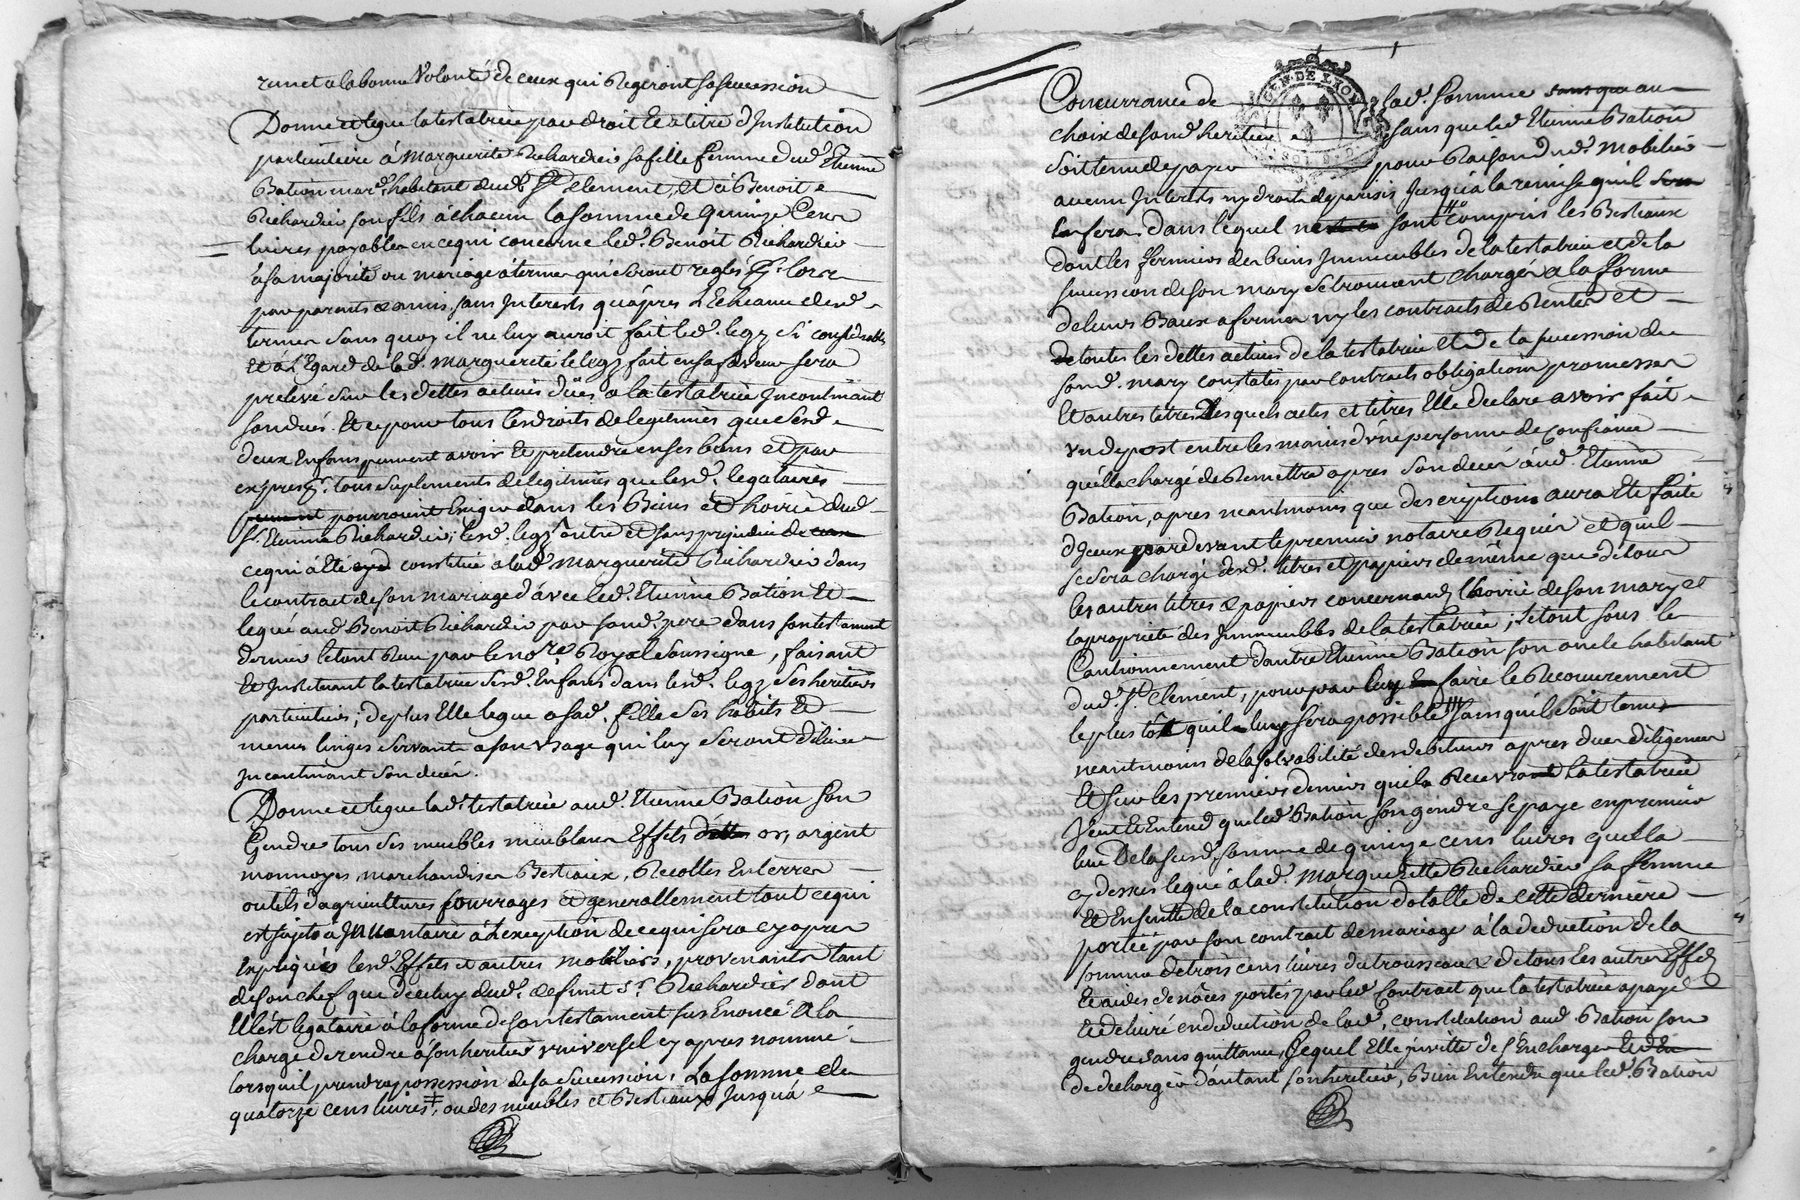 rem et a la bonne Volonté de ceux qui Regeront sa succession
Donne et legue la testatrice par droit et a titre d'Institution
particuliere à Marguerite Richardier sa fille femme dud. Etienne
Bation mard. habitant dud. St. Clement, Et à Benoit
Richardier son fils à chacun la somme de quinze Cens
livres payables en ce qui concerne led. Benoit Richardier
à sa majorité ou mariage à termes qui seront reglés lors
par parents & amis, sans Interests qu'apres L'Echeance desd.
termes sans quoy il ne luy auroit fait led. legz si considerable
Et à L'Egard de lad. Marguerite le legz fait en sa faveur sera
prelevé sur les dettes actives düës a la testatrice Incontinant
son decés. Et ce pour tous les droits de legitimes que sesd.
deux Enfans peuvent avoir Et pretendre en ses biens Et par
exprés tous suplements de legitimes que lesd. legataires
pourroint Exiger dans les Biens et hoirie dud.
Sr. Etienne Richardier; lesd. legz outre et sans prejudice de
ce qui à Eté constitué a lad. Marguerite Richardier dans
le contract de son mariage d'avec led. Etienne Bation Et
legué aud. Benoit Richardier par sond. pere dans son testament
dernier le tout Reçu par le nore. Royal soussigné, faisant
Et Instituant la testatrice sesd. Enfans dans lesd. legz ses heritiers
particuliers; de plus Elle legue a sad. fille ses habits Et
menus linges servants a son usage qui luy seront délivrés
Incontinant son decés.
Donne et legue lad. testatrice aud. Etienne Bation son
Gendre tous ses meubles meublans Effets or, argent
monnoyés, marchandises Bestiaux, Recoltes En terres
outils d'agricultures fourrages Et generallement tout ce qui
est sujets à Inventaire à L'exeption de ce qui sera cy apres
Expliqués lesd. Effets et autres mobiliers, provenants tant
de son chef que de celuy dud. defunt Sr. Richardier dont
Elle est legataire à la forme de son testament sus Enoncé A la
charge de rendre à son heritier universel cy apres nommé
lorsqu'il prendra possession de sa succession, La somme de
quatorze cens livres ‡, ou des meubles et Bestiaux Jusqu'à
Concurrance de lad. somme sans que au
choix de sond. heritier sans que led. Etienne Bation
soit tenu de payer pour Raison dud. Mobilier
aucun Interests ny droits de parisis Jusqu'à la remise qu'il
en fera, dans lequel ne sont compris les Bestiaux
dont les fermiers des biens Immeubles de la testatrice et de la
succession de son mary se trouvent Chargés a la forme
de leurs Baux a ferme ny les contracts de Rentes et
de toutes les dettes actives de la testatrice Et de la succession de
sond. mary constatés par Contracts obligations promesses
Et autres titres Desquels actes et titres Elle declare avoir fait
un depost entre les mains d'une personne de Confiance
qu'elle a chargé de Remettre apres son decés aud. Etienne
Bation, apres neantmoins que description aura Eté faite
d'Iceux pardevant le premier notaire Requis et qu'il
se sera chargé desd. titres et papiers de même que de tous
les autres titres & papiers concernants L'hoirie de son mary et
la proprieté des Immeubles de la testatrice; le tout sous le
Cautionnement d'autre Etienne Bation son oncle habitant
dud. St. Clement, pour par luy faire le Recouvrement
le plus tôt qu'il luy sera possible sans qu'il soit tenu
neantmoins de la solvabilité des debiteurs apres dues diligences
Et sur les premiers deniers qu'il Recouvra la testatrice
Veut Et Entend que led. Bation son gendre se paye en premier
lieu De la susd. somme de quinze cens livres qu'ella
cy dessus legué à lad. Marguerite Richardier sa femme
Et Ensuitte de la constitution dotalle de cette derniere
portée par son contrat de mariage à la deduction de la
somme de trois cens livres du trousseau & de tous les autres Effets
Et aides de nôces portés par led. Contrat que la testatrice a payé
Et delivré en deduction de lad. constitution aud. Bation son
gendre sans quittance, Lequel Elle invitte de s'En charger
De decharger d'autant son heritier, Bien Entendu que led. Bation
GEN. DE LYON